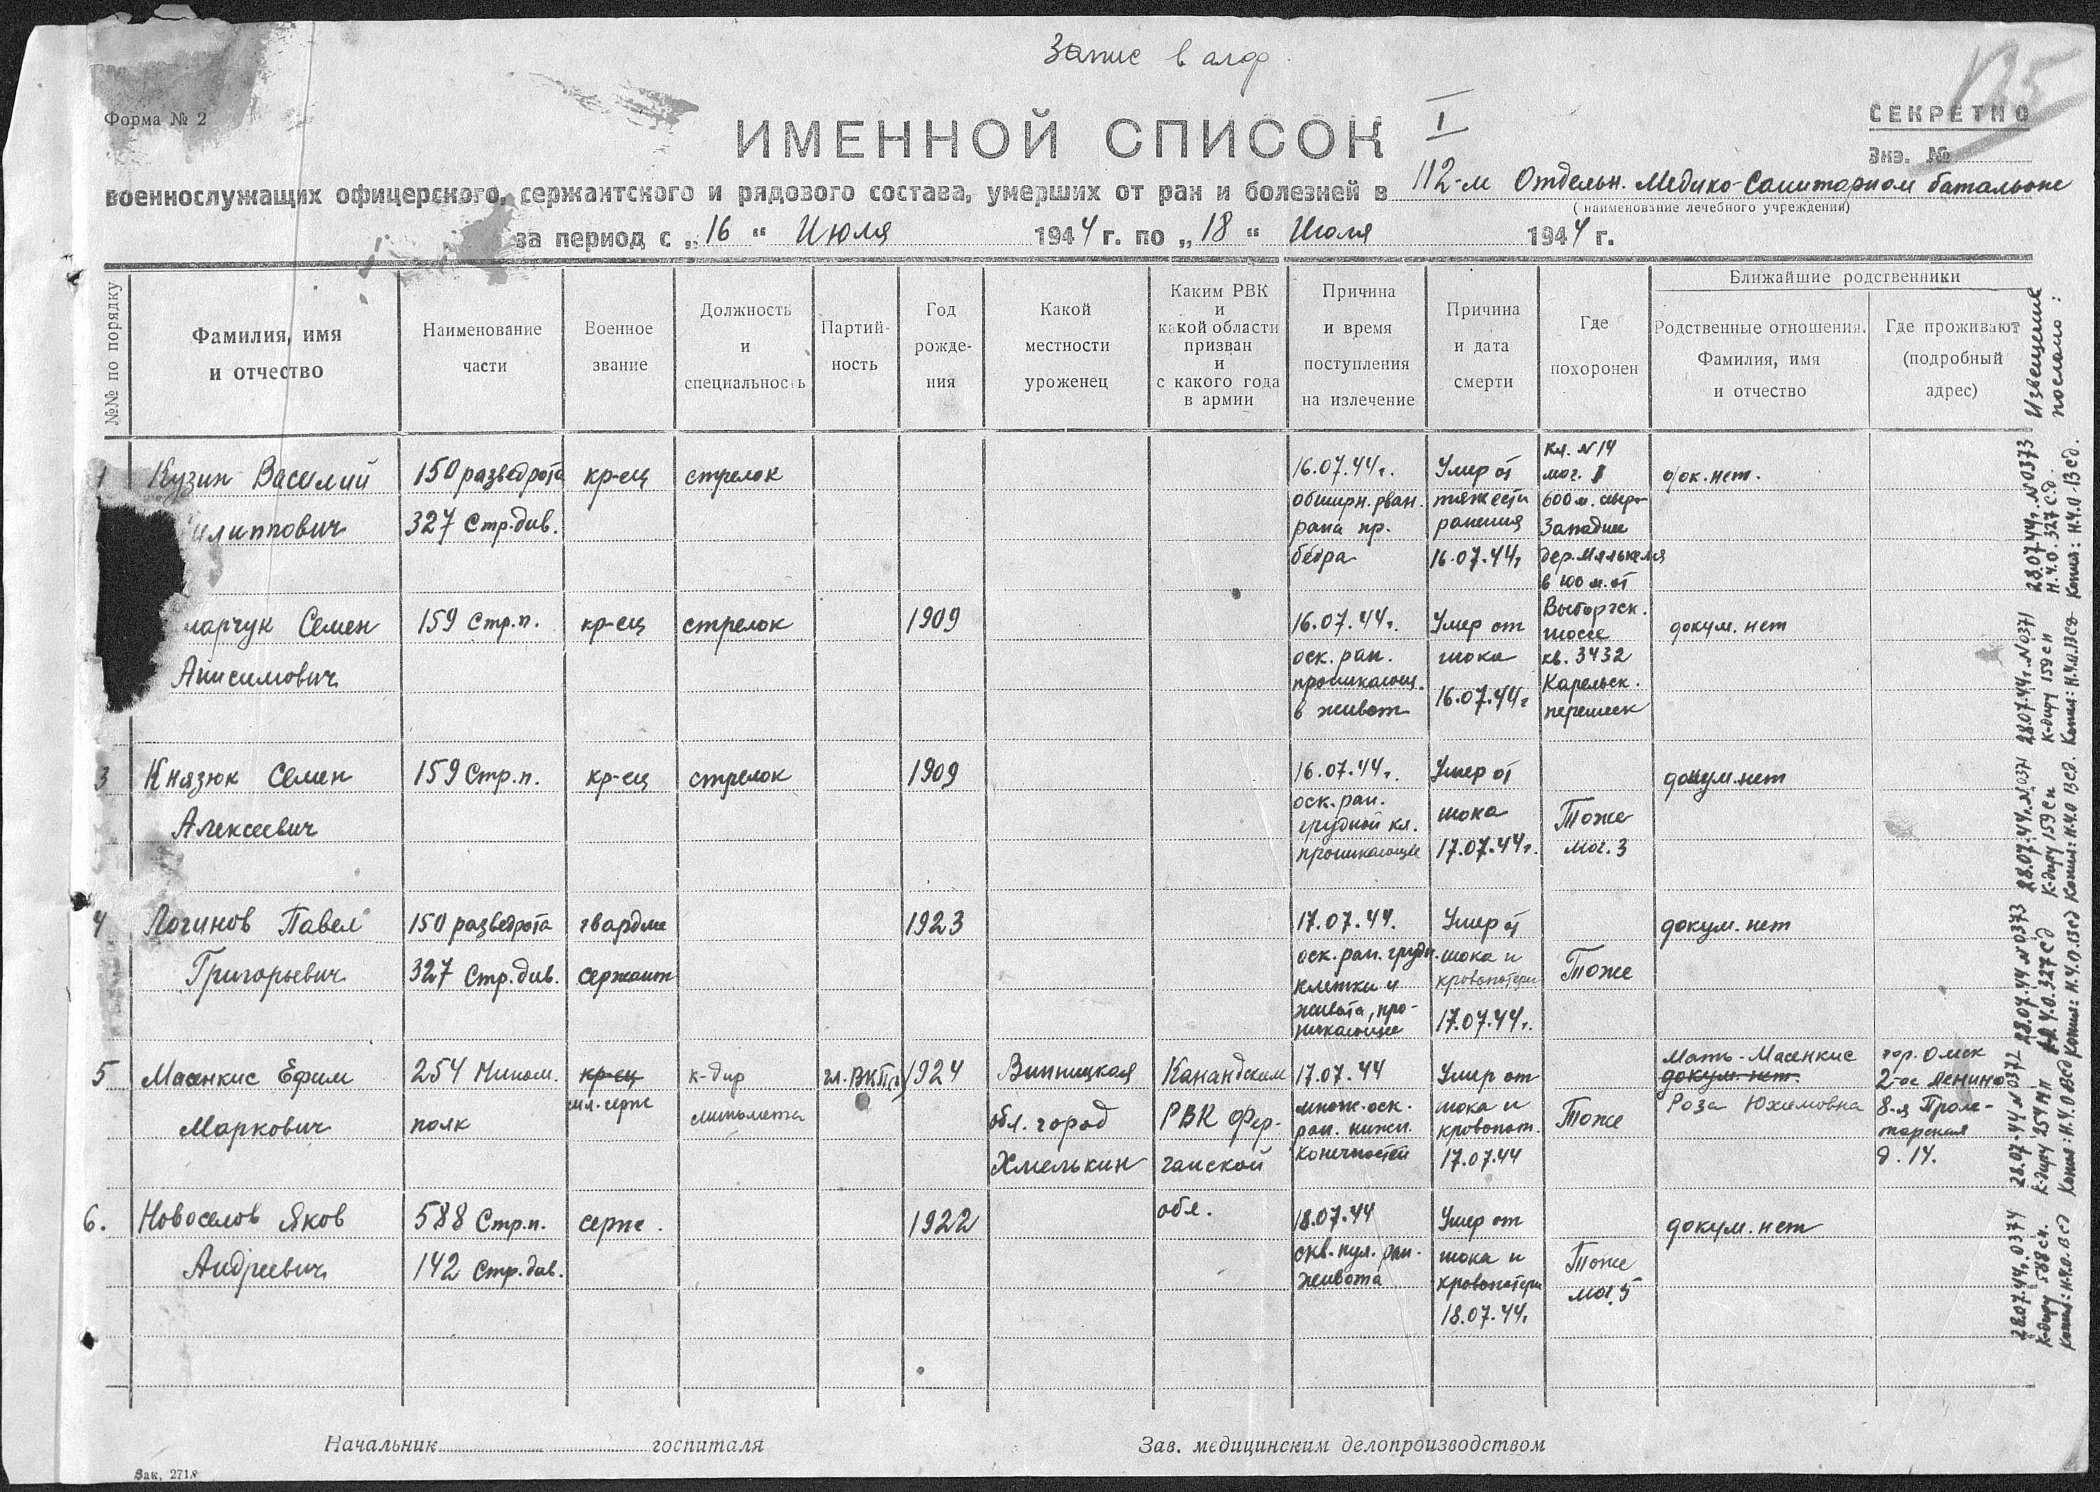 Запис в алф.
Форма № 2
СЕКРЕТНО
Экз. №
ИМЕННОЙ СПИСОК I
военнослужащих офицерского, сержантского и рядового состава, умерших от ран и болезней в 112-м Отдельн. Медико-Санитарном батальоне
(наименование лечебного учреждения)
за период с „16“ Июля 1944 г. по „18“ Июля 1944 г.
№№ по порядку
Фамилия, имя
и отчество
Наименование
части
Военное
звание
Должность
и
специальность
Партий-
ность
Год
рожде-
ния
Какой
местности
уроженец
Каким РВК
и
какой области
призван
и
с какого года
в армии
Причина
и время
поступления
на излечение
Причина
и дата
смерти
Где
похоронен
Ближайшие родственники
Родственные отношения.
Фамилия, имя
и отчество
Где проживают
(подробный
адрес)
Извещение
послано:
1
Кузин Василий
илиппович
150 разведрота
327 Стр. див.
кр-ец
стрелок
16.07.44г.
обширн. рван.
рана пр.
бедра
Умер от
тяжести
ранения
16.07.44г
кл. №14
мог. 1
600 м. северо-
Западнее
в 100 м. от
Выборгск.
шоссе
кв. 3432
Карельск.
перешеек
док. нет.
28.07.44г. №0373
Н.Ч.О. 327 с.д.
Копия: Н.Ч.О. 13 сд.
марчук Семен
Анисимович
159 Стр. п.
кр-ец
стрелок
1909
16.07.44г.
оск. ран.
проникающ.
в живот
Умер от
шока
16.07.44г
докум. нет
28.07.44г. №0371
К-диру 159 сп
Копия: Н.Ч.О. 13сд
3
Князюк Семен
Алексеевич
159 Стр. п.
кр-ец
стрелок
1909
16.07.44г.
оск. ран.
грудной кл.
проникающее
Умер от
шока
17.07.44г.
Тоже
мог. 3
докум. нет
28.07.44г. №0371
К-диру 159 сп
Копия: Н.Ч.О 13 сд.
4
Логинов Павел
Григорьевич
150 разведрота
327 Стр. див.
гвардии
сержант
1923
17.07.44.
оск. ран. грудн.
клетки и
живота, про-
никающее
Умер от
шока и
кровопотери
17.07.44г.
Тоже
докум. нет
28.07.44 №0373
Н.Ч.О. 327 сд
Копия: Н.Ч.О. 13 сд
5
Масенкис Ефим
Маркович
254 Мином.
полк
кр-ец
мл. серж
к-дир
миномета
чл. ВКП(б)
1924
Винницкая
обл. город
Хмелькин
Канандским
РВК Фер-
ганской
обл.
17.07.44
множ. оск.
ран. нижн.
конечностей
Умер от
шока и
кровопот.
17.07.44
Тоже
Мать - Масенкис
докум. нет.
Роза Юхимовна
гор. Омск
2-ое Ленино
8-я Проле-
тарская
д. 14.
28.07.44 №0372
К-диру 254 МП
Копия: Н.Ч.О 13сд
6.
Новоселов Яков
Андреевич
588 Стр. п.
142 Стр. див.
серж.
1922
18.07.44
скв. пул. ран.
живота
Умер от
шока и
кровопотери
18.07.44г.
Тоже
мог. 5
докум. нет
28.07.44г. 0374
К-диру 588 сп.
Копия: Н.Ч.О. 13 сд
Начальник госпиталя
Зав. медицинским делопроизводством
Зак. 2718